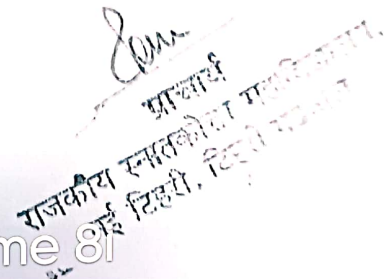 प्राचार्य
राजकीय स्नातकोत्तर महाविद्यालय,
नई टिहरी, टिहरी गढ़वाल
me 8i